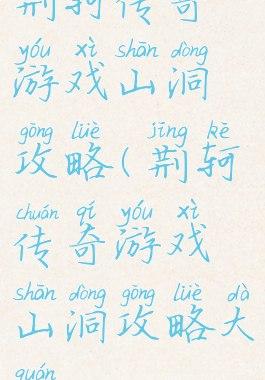 荆轲传奇
yóu xì shān dòng
游戏山洞
gōng lüè jīng kē
攻略(荆轲
chuán qí yóu xì
传奇游戏
shān dòng gōng lüè dà
山洞攻略大
quán